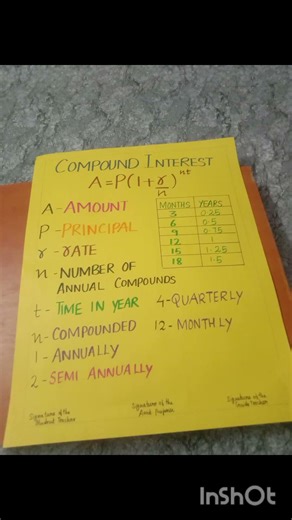 COMPOUND INTEREST
A=P(1+r/n)^nt
A-AMOUNT
P-PRINCIPAL
r-rATE
n-NUMBER OF
ANNUAL COMPOUNDS
t-TIME IN YEAR
n-COMPOUNDED
1-ANNUALLY
2-SEMI ANNUALLY
MONTHS YEARS
3 0.25
6 0.5
9 0.75
12 1
15 1.25
18 1.5
4-QUARTERLY
12-MONTHLY
Signature of the
Student Teacher
Signature of the
Signature of the
InShOt